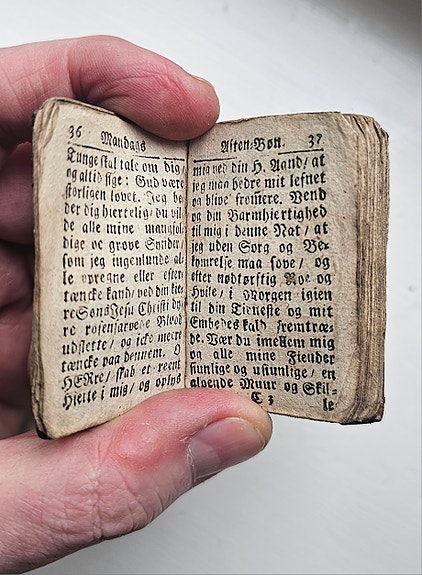 36 Mandags
Tunge skal tale om dig/
og altid sige: Gud være
storligen lovet. Jeg be
der dig hiertelig/ du vil
de alle mine mangfol-
dige oc grove Synder/
som jeg ingenlunde al-
le opregne eller efter-
tæncke kand/ ved din kie-
re Søns Jesu Christi dyre
re rosenfarvede Blood
udslette/ og icke meere
tæncke paa dennem. O
HERre/ skab et reent
Hierte i mig/ og oplys
Aften-Bøn. 37
mig ved din H. Aand/ at
jeg maa bedre mit lefnet
og blive from̃ere. Vend
og din Barmhiertighed
til mig i denne Nat/ at
jeg uden Sorg og Be-
kymrelse maa sove/ og
efter nødtørftig Roe og
Hvile/ i Morgen igien
til din Tieneste og mit
Embedes kald fremtræ-
de. Vær du imellem mig
og alle mine Fiender
siunlige og usiunlige/ en
gloende Muur og Skil-
C 3 le